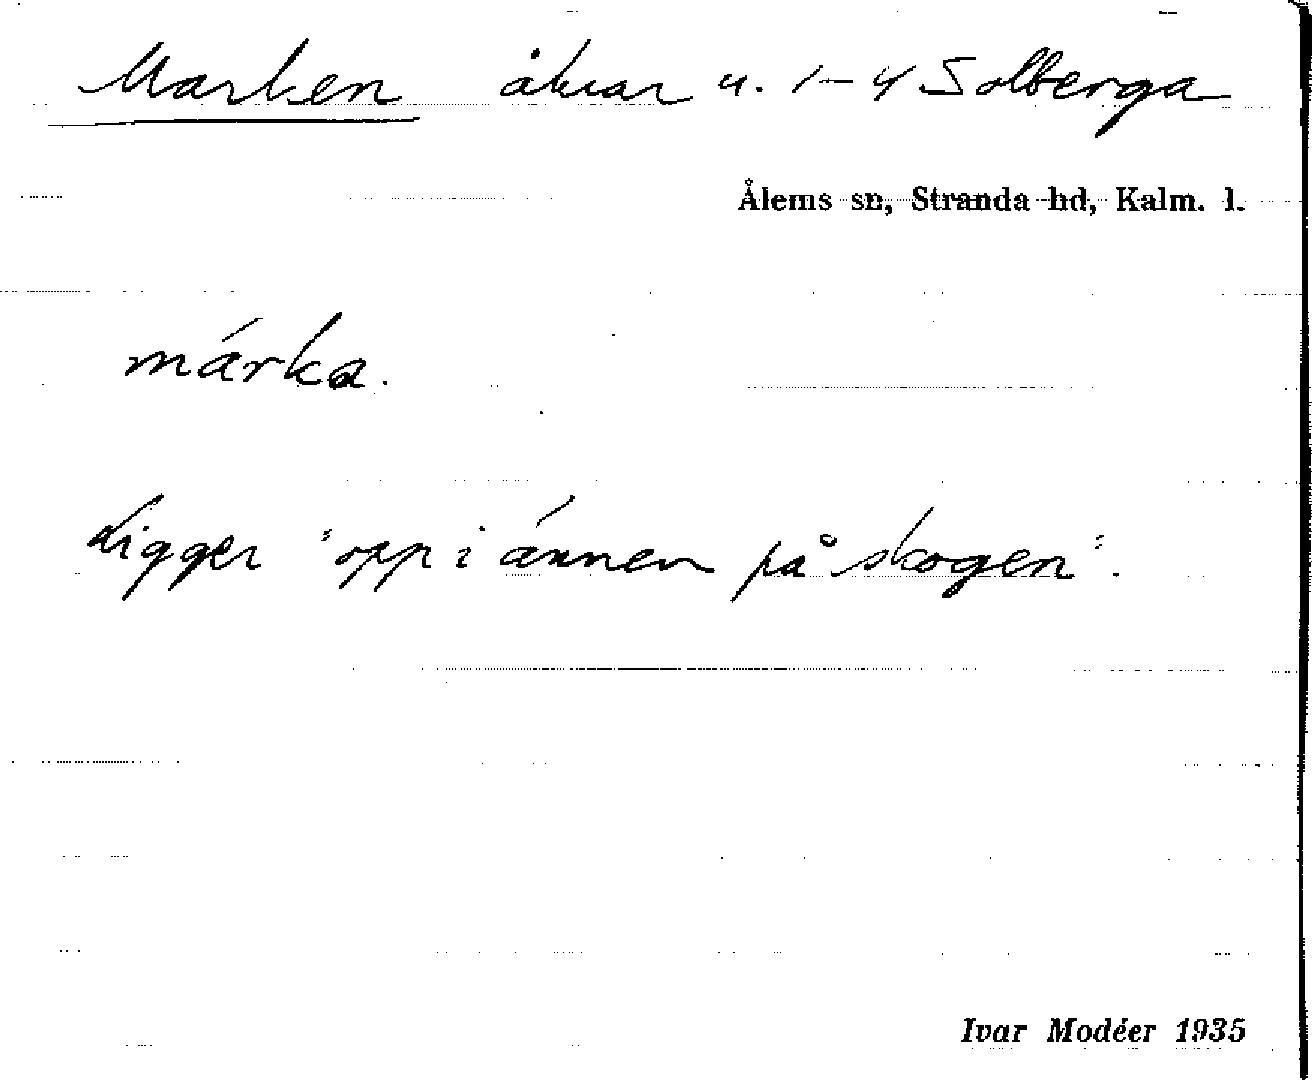 Marken åkrar u. 1–4 Solberga
Ålems sn, Stranda hd, Kalm. l.
márka.
Ligger "opp i ánnen på skogen".
Ivar Modéer 1935